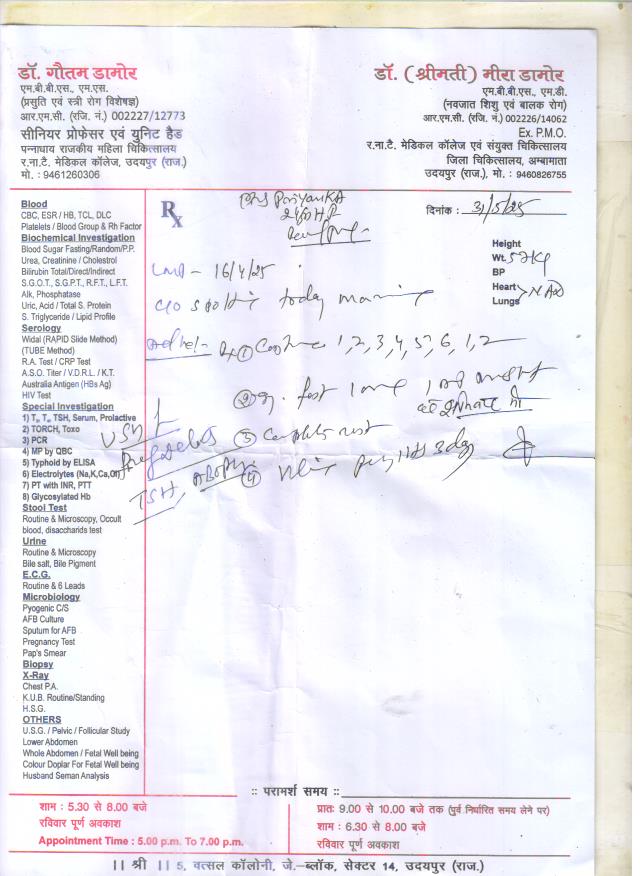 डॉ. गौतम डामोर
एम.बी.बी.एस., एम.एस.
(प्रसुति एवं स्त्री रोग विशेषज्ञ)
आर.एम.सी. (रजि. नं.) 002227/12773
सीनियर प्रोफेसर एवं युनिट हैड
पन्नाधाय राजकीय महिला चिकित्सालय
र.ना.टै. मेडिकल कॉलेज, उदयपुर (राज.)
मो. : 9461260306
डॉ. (श्रीमती) मीरा डामोर
एम.बी.बी.एस., एम.डी.
(नवजात शिशु एवं बालक रोग)
आर.एम.सी. (रजि. नं.) 002226/14062
Ex. P.M.O.
र.ना.टै. मेडिकल कॉलेज एवं संयुक्त चिकित्सालय
जिला चिकित्सालय, अम्बामाता
उदयपुर (राज.), मो. : 9460826755
Blood
CBC, ESR / HB, TCL, DLC
Platelets / Blood Group & Rh Factor
Biochemical Investigation
Blood Sugar Fasting/Random/P.P.
Urea, Creatinine / Cholestrol
Bilirubin Total/Direct/Indirect
S.G.O.T., S.G.P.T., R.F.T., L.F.T.
Alk, Phosphatase
Uric, Acid / Total S. Protein
S. Triglyceride / Lipid Profile
Serology
Widal (RAPID Slide Method)
(TUBE Method)
R.A. Test / CRP Test
A.S.O. Titer / V.D.R.L. / K.T.
Australia Antigen (HBs Ag)
HIV Test
Special Investigation
1) T₃, T₄, TSH, Serum, Prolactive
2) TORCH, Toxo
3) PCR
4) MP by QBC
5) Typhoid by ELISA
6) Electrolytes (Na,K,Ca,
7) PT with INR, PTT
8) Glycosylated Hb
Stool Test
Routine & Microscopy, Occult
blood, disaccharids test
Urine
Routine & Microscopy
Bile salt, Bile Pigment
E.C.G.
Routine & 6 Leads
Microbiology
Pyogenic C/S
AFB Culture
Sputum for AFB
Pregnancy Test
Pap's Smear
Biopsy
X-Ray
Chest P.A.
K.U.B. Routine/Standing
H.S.G.
OTHERS
U.S.G. / Pelvic / Follicular Study
Lower Abdomen
Whole Abdomen / Fetal Well being
Colour Doplar For Fetal Well being
Husband Seman Analysis
Rx
PriyanKA
दिनांक : 31/5/25
Height
Wt. 52 kg
BP
Heart
Lungs NAD
LMP - 16/4/25
C/o spotting today morning
Rx ① 1, 2, 3, 4, 5, 6, 1, 2
②
USG
③ Complete rest
TSH,
④ 3 day
:: परामर्श समय ::
शाम : 5.30 से 8.00 बजे
रविवार पूर्ण अवकाश
Appointment Time : 5.00 p.m. To 7.00 p.m.
प्रातः 9.00 से 10.00 बजे तक (पुर्व निर्धारित समय लेने पर)
शाम : 6.30 से 8.00 बजे
रविवार पूर्ण अवकाश
।। श्री ।। 5, वत्सल कॉलोनी, जे.-ब्लॉक, सेक्टर 14, उदयपुर (राज.)